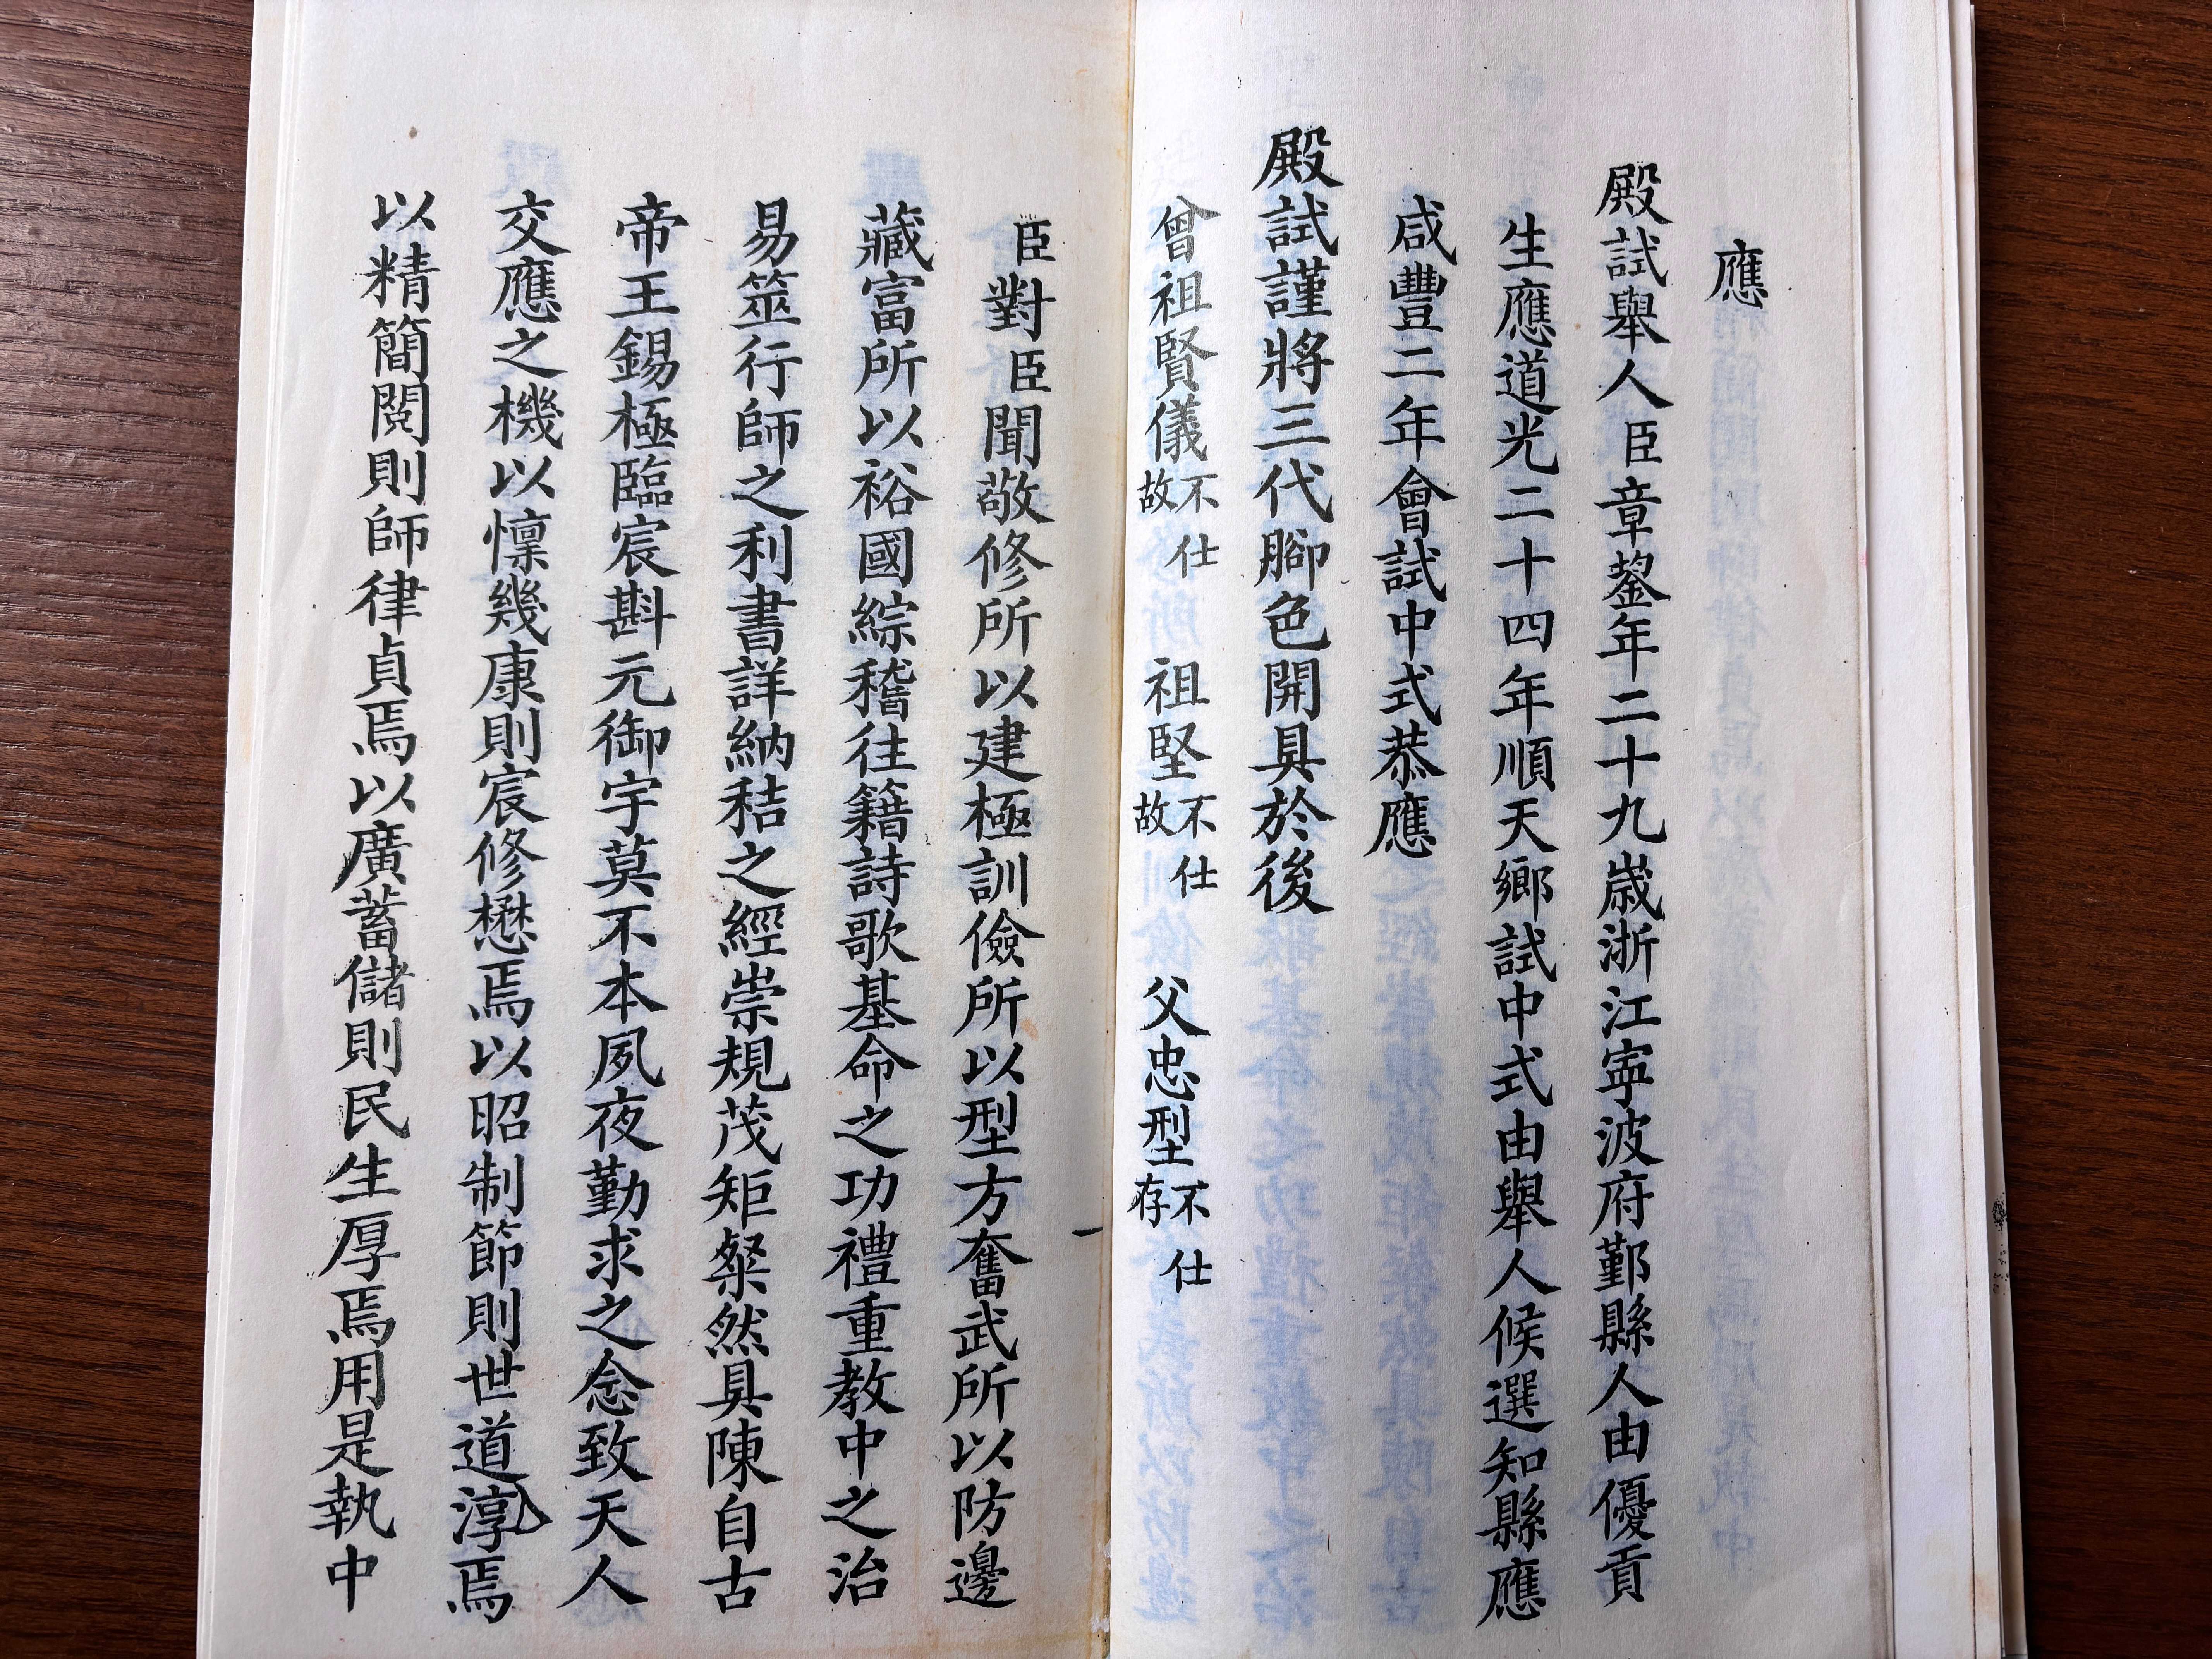 應
殿試舉人臣章鋆年二十九歲浙江寧波府鄞縣人由優貢
生應道光二十四年順天鄉試中式由舉人候選知縣應
咸豐二年會試中式恭應
殿試謹將三代腳色開具於後
曾祖賢儀不仕故 祖堅不仕故 父忠型不仕存
臣對臣聞敬修所以建極訓儉所以型方奮武所以防邊
藏富所以裕國綜稽往籍詩歌基命之功禮重教中之治
易筮行師之利書詳納秸之經崇規茂矩粲然具陳自古
帝王錫極臨宸斟元御宇莫不本夙夜勤求之念致天人
交應之機以懍幾康則宸修懋焉以昭制節則世道淳焉
以精簡閱則師律貞焉以廣蓄儲則民生厚焉用是執中